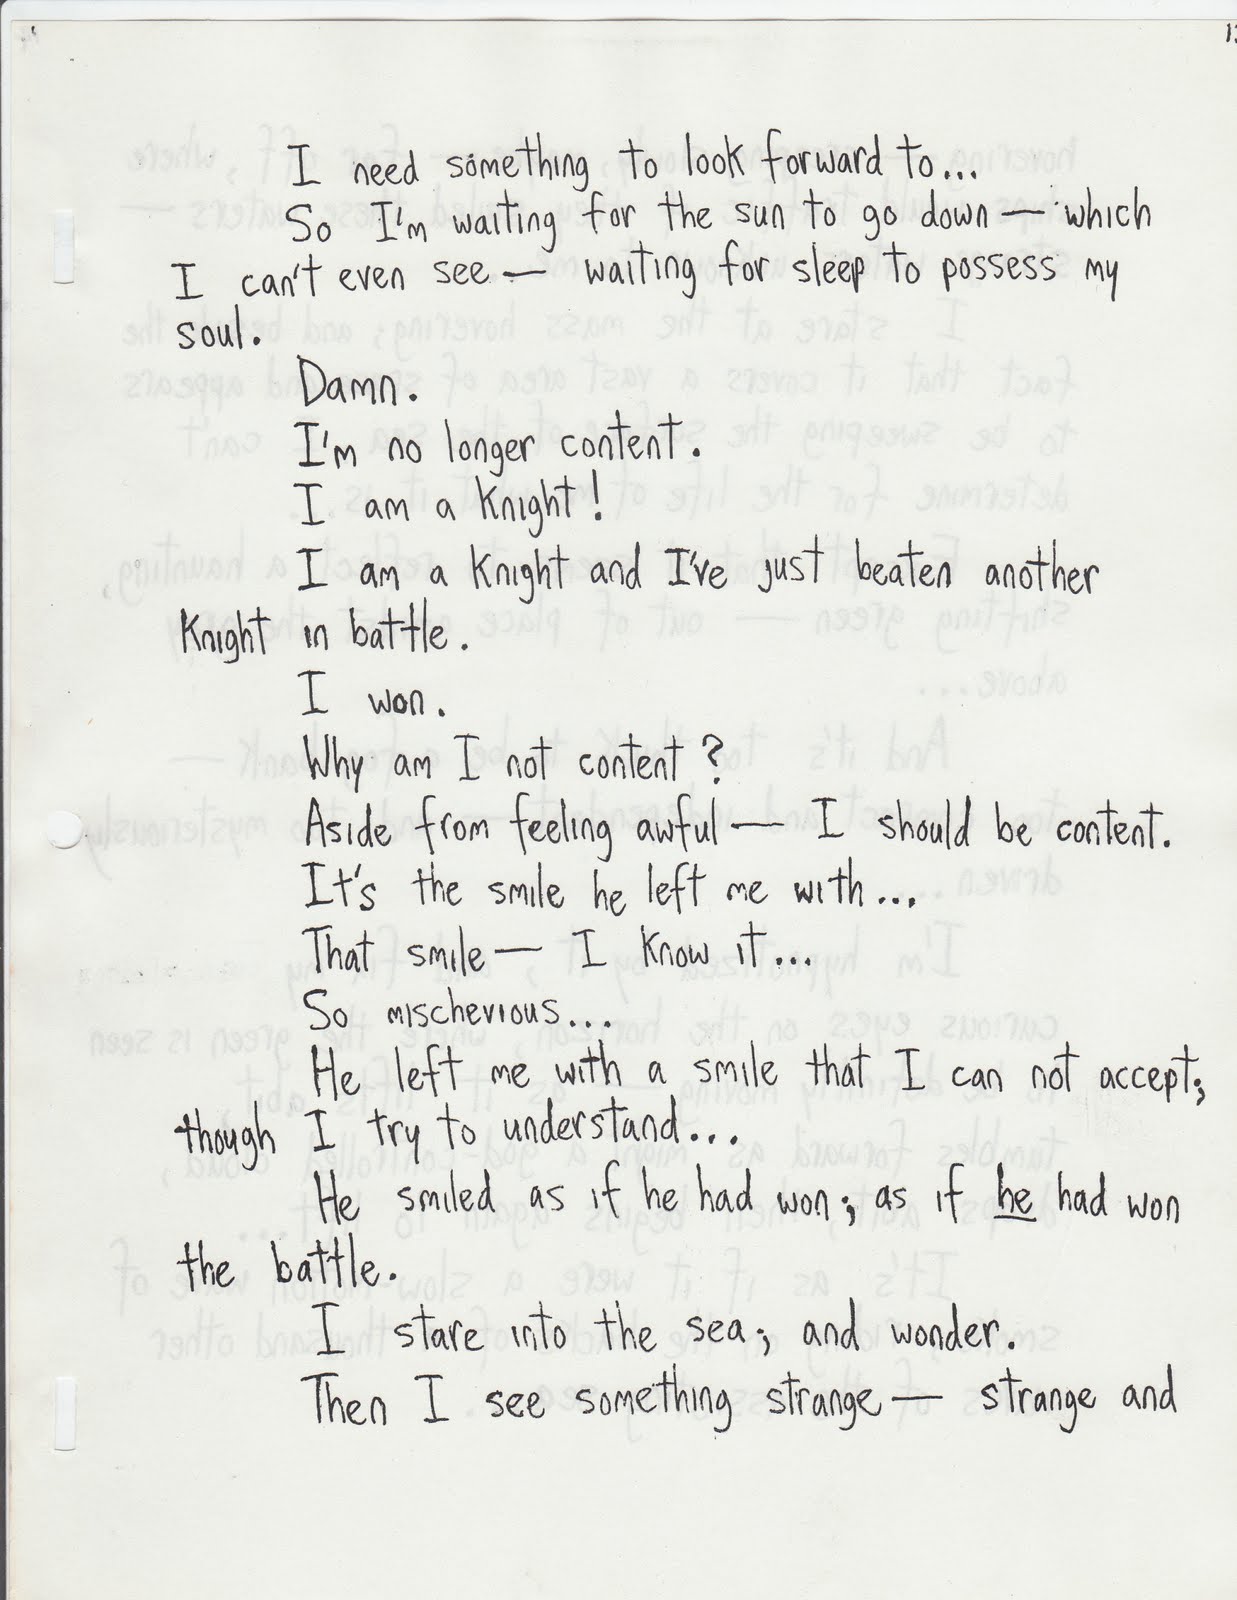 I need something to look forward to...
So I'm waiting for the sun to go down — which
I can't even see — waiting for sleep to possess my
soul.
Damn.
I'm no longer content.
I am a Knight!
I am a Knight and I've just beaten another
Knight in battle.
I won.
Why am I not content?
Aside from feeling awful — I should be content.
It's the smile he left me with...
That smile — I know it...
So mischevious...
He left me with a smile that I can not accept;
though I try to understand...
He smiled as if he had won; as if he had won
the battle.
I stare into the sea; and wonder.
Then I see something strange — strange and